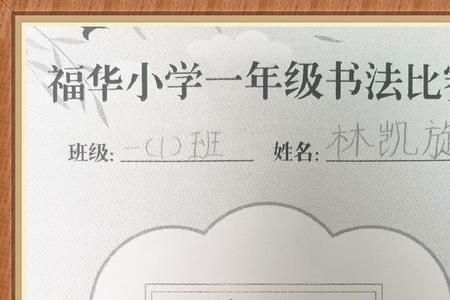 福华小学一年级书法比赛
班级: 一(1)班 姓名: 林凯旋